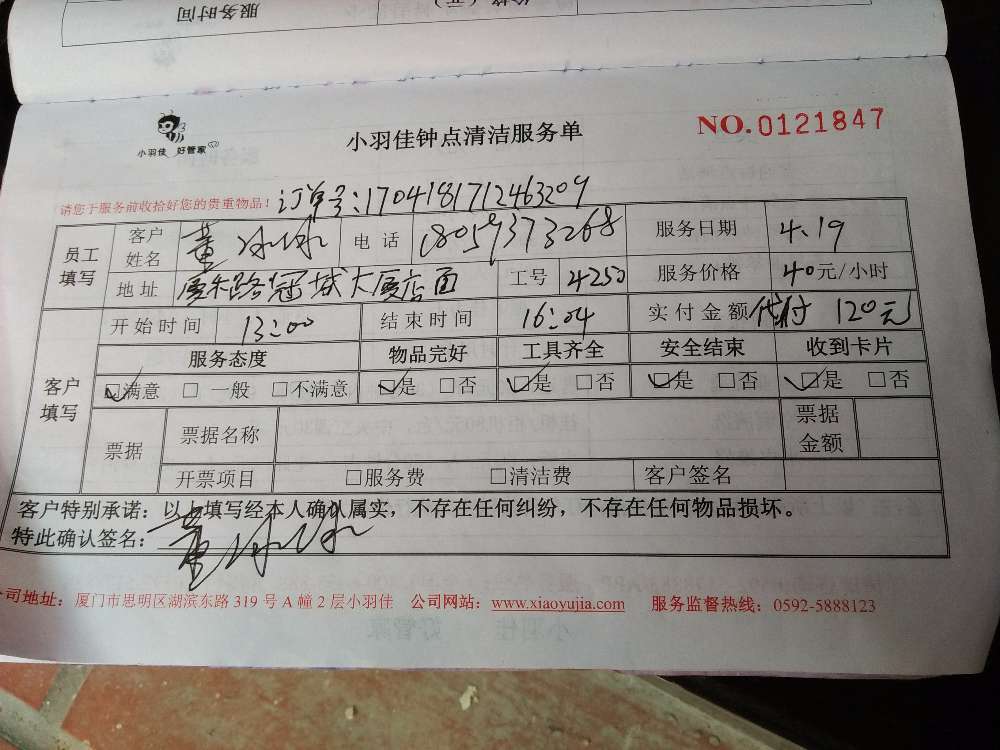 服务时间 价格（元）
小羽佳 好管家
小羽佳钟点清洁服务单
NO.0121847
请您于服务前收拾好您的贵重物品！订单号:1704181712463209
员工填写 客户姓名 董冰冰 电话 18059373268 服务日期 4.19
地址 厦禾路冠城大厦店面 工号 4250 服务价格 40元/小时
客户填写 开始时间 13:00 结束时间 16:04 实付金额 代付 120元
服务态度 物品完好 工具齐全 安全结束 收到卡片
☑满意 □一般 □不满意 ☑是 □否 ☑是 □否 ☑是 □否 ☑是 □否
票据 票据名称 票据金额
开票项目 □服务费 □清洁费 客户签名
客户特别承诺：以上填写经本人确认属实，不存在任何纠纷，不存在任何物品损坏。
特此确认签名：董冰冰
公司地址：厦门市思明区湖滨东路 319 号 A 幢 2 层小羽佳 公司网站：www.xiaoyujia.com 服务监督热线：0592-5888123